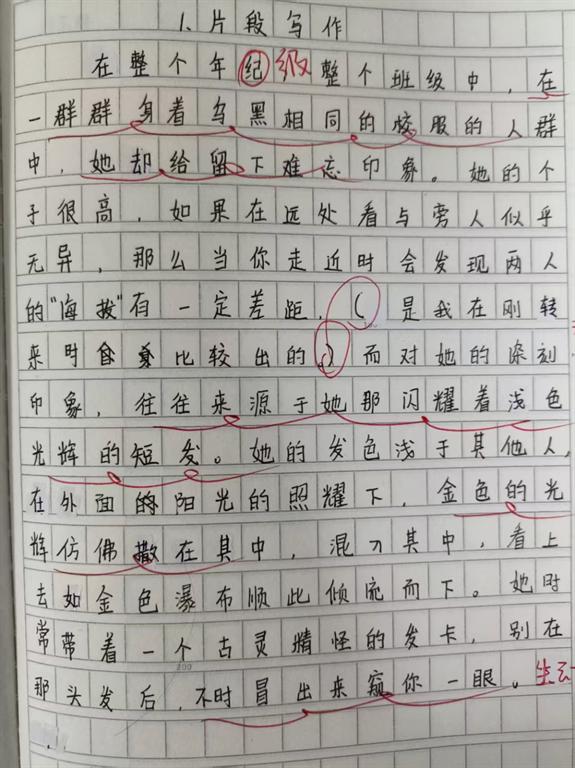 1.片段写作
在整个年纪级整个班级中，在
一群群身着乌黑相同的校服的人群
中，她却给留下难忘印象。她的个
子很高，如果在远处看与旁人似乎
无异，那么当你走近时会发现两人
的"海拔"有一定差距，（是我在刚转
来时自身比较出的）而对她的深刻
印象，往往来源于她那闪耀着浅色
光辉的短发。她的发色浅于其他人，
在外面的阳光的照耀下，金色的光
辉仿佛撒在其中，混刀其中，看上
去如金色瀑布顺此倾流而下。她时
常带着一个古灵精怪的发卡，别在
那头发后，不时冒出来窥你一眼。生动